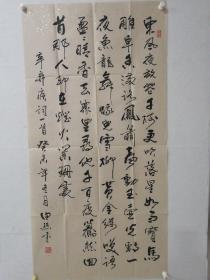 東風夜放花千树更吹落星如雨寶馬
雕車香滿路鳳簫聲動玉壺光轉一
夜魚龍舞蛾兒雪柳黃金縷笑語
盈盈暗香去衆里尋他千百度驀然回
首那人却在燈火闌珊處
辛弃疾詞一首癸未年月